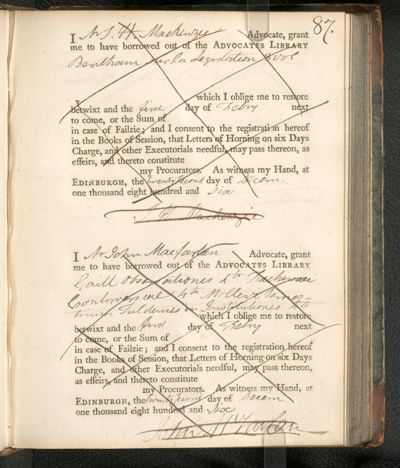 87.
I Mr J. H. Mackenzie Advocate, grant
me to have borrowed out of the ADVOCATES LIBRARY
Bentham sur la Legislation 3 vol
which I oblige me to restore
betwixt and the first day of Febry next
to come, or the Sum of
in case of Failzie; and I consent to the registration hereof
in the Books of Session, that Letters of Horning on six Days
Charge, and other Executorials needful, may pass thereon, as
effeirs, and thereto constitute
my Procurators. As witness my Hand, at
EDINBURGH, the twenty second day of Decem.
one thousand eight hundred and Six
J. H. Mackenzie
I Mr John Macfarlan Advocate, grant
me to have borrowed out of the ADVOCATES LIBRARY
Gaill Observationes 4to
Controversiae 4to
in Institutiones 4to
which I oblige me to restore
betwixt and the first day of Febry next
to come, or the Sum of
in case of Failzie; and I consent to the registration hereof
in the Books of Session, that Letters of Horning on six Days
Charge, and other Executorials needful, may pass thereon,
as effeirs, and thereto constitute
my Procurators. As witness my Hand, at
EDINBURGH, the twenty second day of Decem
one thousand eight hundred and Six
John McFarlan